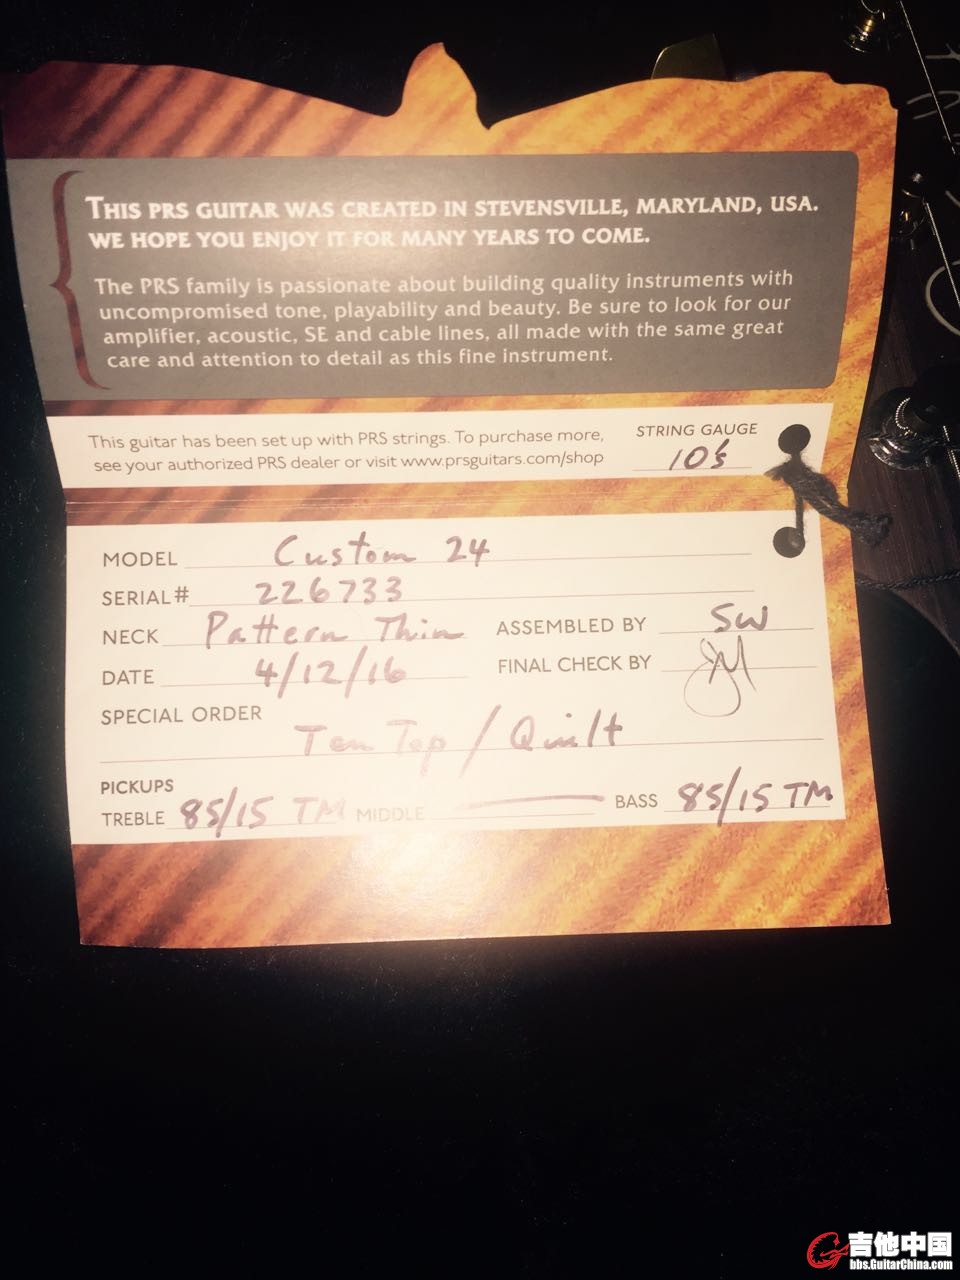 THIS PRS GUITAR WAS CREATED IN STEVENSVILLE, MARYLAND, USA.
WE HOPE YOU ENJOY IT FOR MANY YEARS TO COME.
The PRS family is passionate about building quality instruments with
uncompromised tone, playability and beauty. Be sure to look for our
amplifier, acoustic, SE and cable lines, all made with the same great
care and attention to detail as this fine instrument.
This guitar has been set up with PRS strings. To purchase more,
see your authorized PRS dealer or visit www.prsguitars.com/shop
STRING GAUGE
10's
MODEL Custom 24
SERIAL# 226733
NECK Pattern Thin ASSEMBLED BY SW
DATE 4/12/16 FINAL CHECK BY JM
SPECIAL ORDER
Ten Top / Quilt
PICKUPS
TREBLE 85/15 TM MIDDLE BASS 85/15 TM
吉他中国
bbs.GuitarChina.com